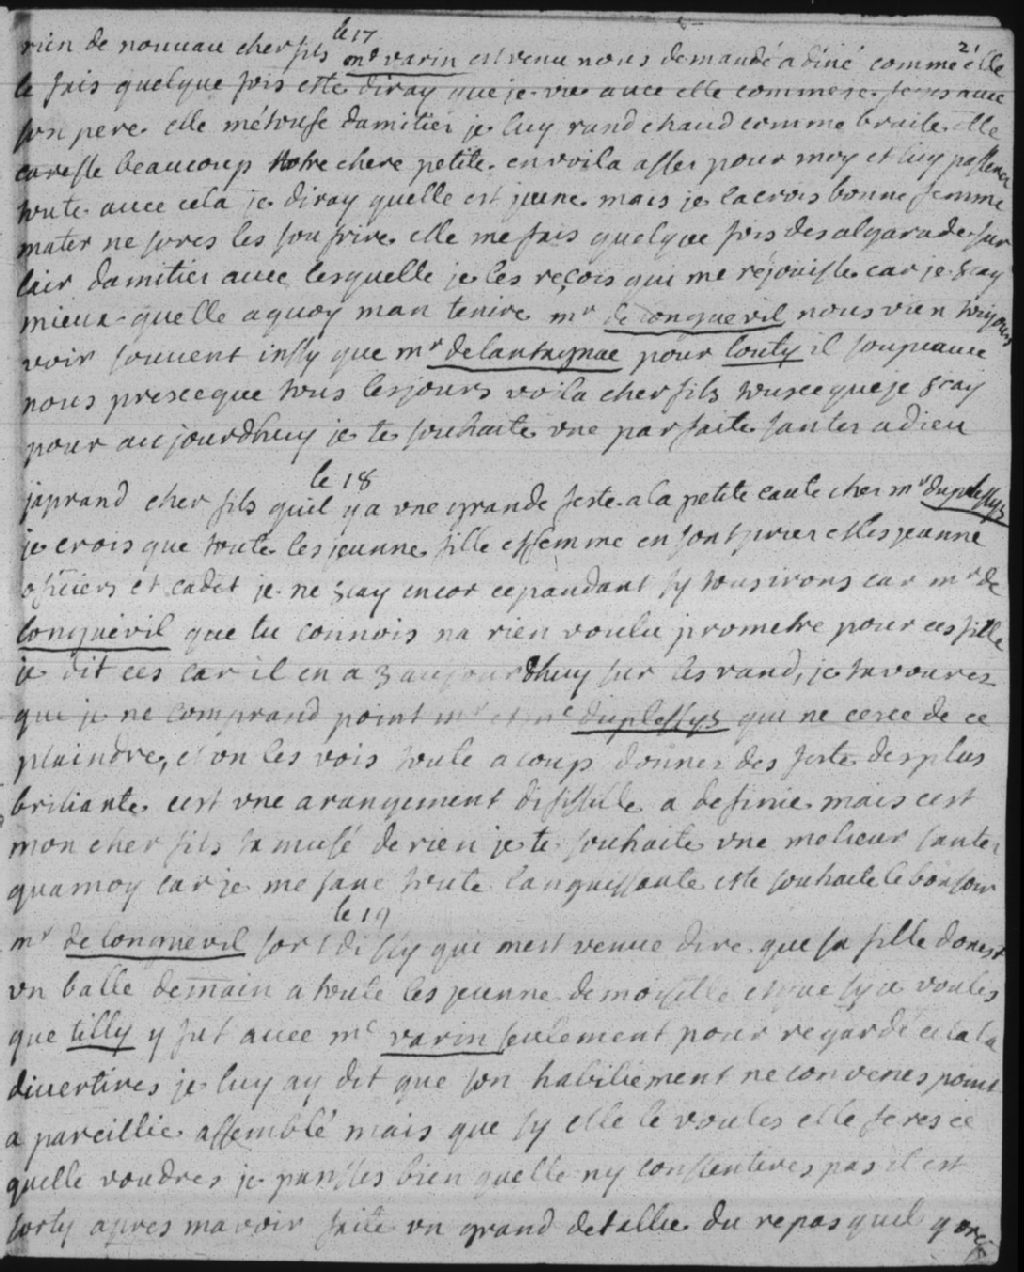 21
le 17
rien de nouveau cher fils me varin est venu nous demandé a diné comme elle
le fais quelque fois este diray que je vie avec elle comme je feres avec
son pere elle métoufe damitiei je luy rand chaud comme braile elle
caresse beaucoup notre chere petite en voila asses pour moy et luy passerai
toute avec cela je diray quelle est jeune mais je la crois bonne femme
mater ne sores les soufrire elle me fais quelque fois des algarade sur
lair damitiei avec lesquelle je les reçois qui me rejouiste car je scay
mieux quelle a quoy man tenire mr de longuevil nous vien toujours
voir souvent insy que mr delantagnac pour louty il soupe avec
nous presceque tous les jours voila cher fils tousce que je scay
pour aujourdhuy je te souhaite une parfaite santer adieu
le 18
japrand cher fils quil ya une grande feste a la petite caute cher mr duplessys
je crois que toute les jeunne fille effemme en sont prier elles jeanne
officiers et cadet je ne scay encor cepandant sy tous irons car mr de
longuevil que tu connois na rien voulu prometre pour ces fille
je dit ces car il en a 3 aujourdhuy sur les rand, je tavoures
que je ne comprand point mr et me duplessys qui ne cerce de ce
plaindre, et on les vois toute a coup donner des feste des plus
briliante cest une arangement difisille a definie mais cest
mon cher fils samusé de rien je te souhaite une melieur santer
qua moy car je me sans toute languissante este souhaite le bonsoir
le 19
mr de longuevil sort disSy qui mest venue dire que sa fille donest
un balle demain a toute les jeunne demoiselle et que sy je voules
que tilly y fut avec me varin seulement pour regardé cela la
divertires je luy ay dit que son habiliement ne convenes point
a pareillie assemblé mais que sy elle le voules elle feres ce
quelle voudres je pansses bien quelle ny conssentires pas il est
sorty apres mavoir faite un grand detallie du repas quil y ores